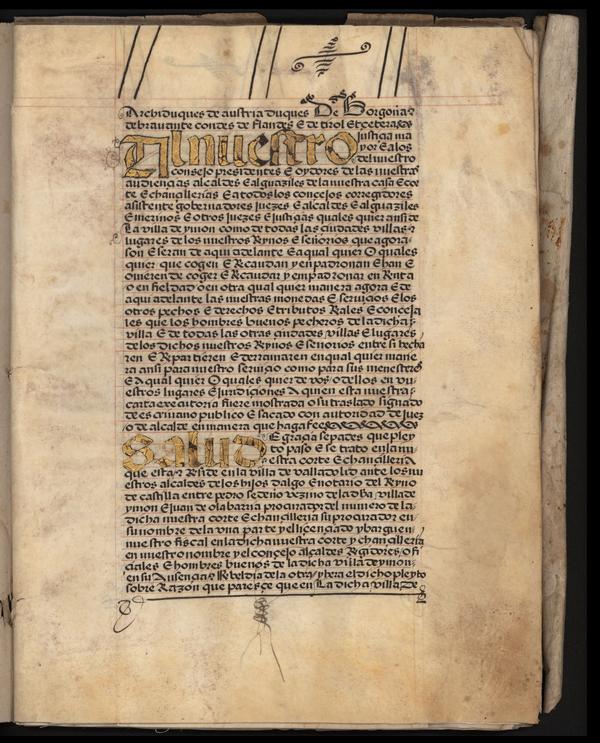 Archiduques de austria duques De Borgoña z
de brauante condes de flandes E de tirol Etcetera
Al nuestro justicia ma
yor E a los
del nuestro
consejo presidentes E oydores de las nuestras
audiencias alcaldes E alguaziles de la nuestra casa E cor
te E chancillerias E a todos los concejos corregidores
asistente gobernadores juezes E alcaldes E alguaziles
E merinos E otros juezes E justiçias quales quier ansi de
La villa de ymon como de todas las ciudades villas z
lugares de los nuestros Rynos E señorios que agora
son E seran de aqui adelante E a qual quier O quales
quier que cogen E Recaudan y enpadronan E han E
ouieren de coger E Recaudar y empadronar en Renta
o en fieldad o en otra qual quier manera agora E de
aqui adelante las nuestras monedas E seruicios E los
otros pechos E derechos E tributos Reales E conceja
les que los hombres buenos pecheros de la dicha
villa E de todas las otras ciudades villas E lugares
de los dichos nuestros Rynos E señorios entre si hecha
ren E Repartieren E derramaren en qual quier mane
ra ansi para nuestro seruicio como para sus menesteres
E a qual quier O quales quier de vos o dellos en vu
estros lugares E juridiciones A quien esta nuestra
carta executoria fuere mostrada o su traslado signado
de escriuano publico E sacado con autoridad de juez
o de alcalde en manera que haga fee
Salud E gracia sepades que pley
to paso E se trato en la nu
estra corte E chancilleria
que esta z Reside en la villa de valladolid ante los nu
estros alcaldes de los hijos dalgo E notario del Reyno
de castilla entre pedro sedeño vezino de la dha villa de
ymon E juan de olabarria procurador del numero de la
dicha nuestra corte E chancilleria su procurador en
su nombre de la vna parte y el licenciado ybarguen
nuestro fiscal en la dicha nuestra corte y chancilleria
en nuestro nombre y el concejo alcaldes Regidores ofi
ciales E hombres buenos de la dicha villa de ymon
en su Ausencia z Rebeldia de la otra y hera el dicho pleyto
sobre Razon que paresçe que en La dicha villa De